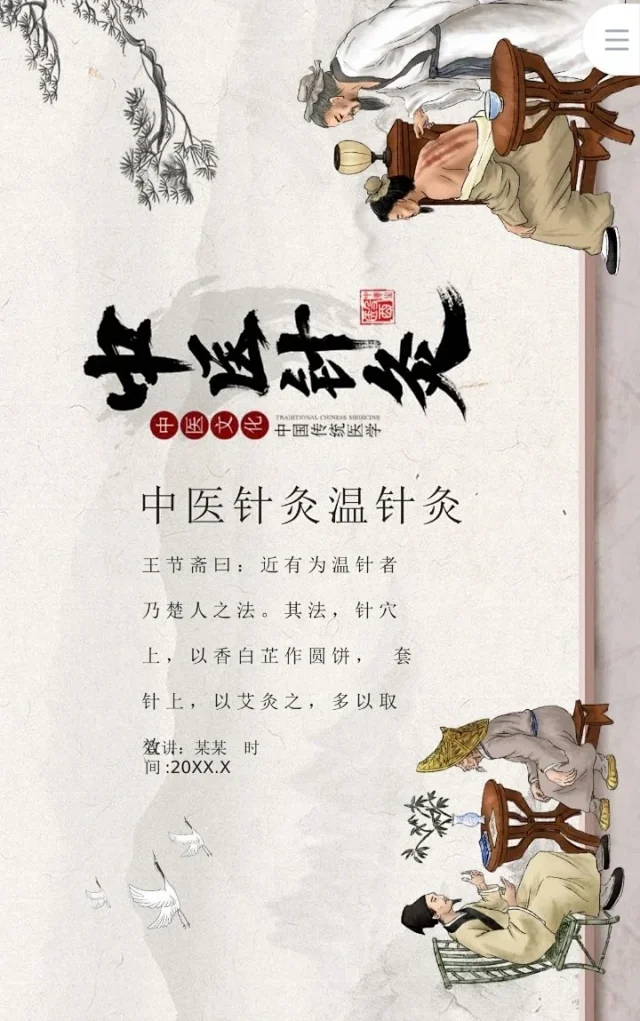 中医针灸
中医文化
TRADITIONAL CHINESE MEDICINE
中国传统医学
中医针灸温针灸
王节斋曰：近有为温针者
乃楚人之法。其法，针穴
上，以香白芷作圆饼， 套
针上，以艾灸之，多以取
效
宣讲：某某 时
间:20XX.X